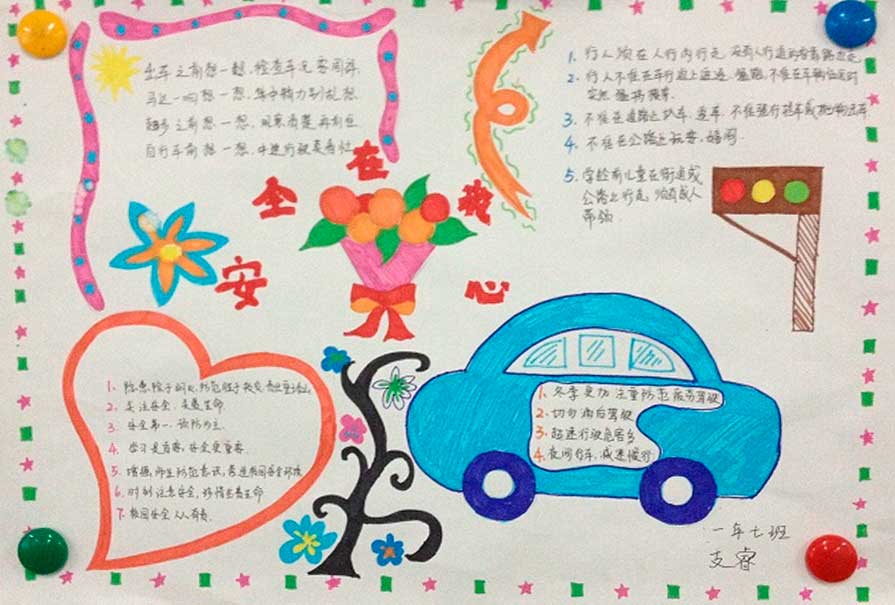 出车之前想一想,检查车况要周详
马达一响想一想,集中精力别乱想
起步之前想一想,观察清楚再前进
自行车前想一想,中速行驶莫着忙
安全在我心
1. 行人须在人行内行走,没有人行道的靠路边走
2. 行人不准在车行道上追逐、猛跑,不准在车辆临近时
突然猛拐横穿.
3. 不准在道路上扒车、追车,不准强行拦车或抛物击车
4. 不准在公路上玩耍、嬉闹.
5. 学龄前儿童在街道或
公路上行走,须有成人
带领
1. 隐患
2. 关注安全,关爱生命
3. 安全第一,预防为主.
4. 学习是重要,安全更重要.
5. 增强师生防范意识,营造校园安全环境
6. 时刻注意安全,珍惜生命
7. 校园安全人人有责.
1. 冬季更加注重防范疲劳驾驶
2. 切勿酒后驾驶
3. 超速行驶危害多
4. 夜间行车,减速慢行
一年七班
支睿